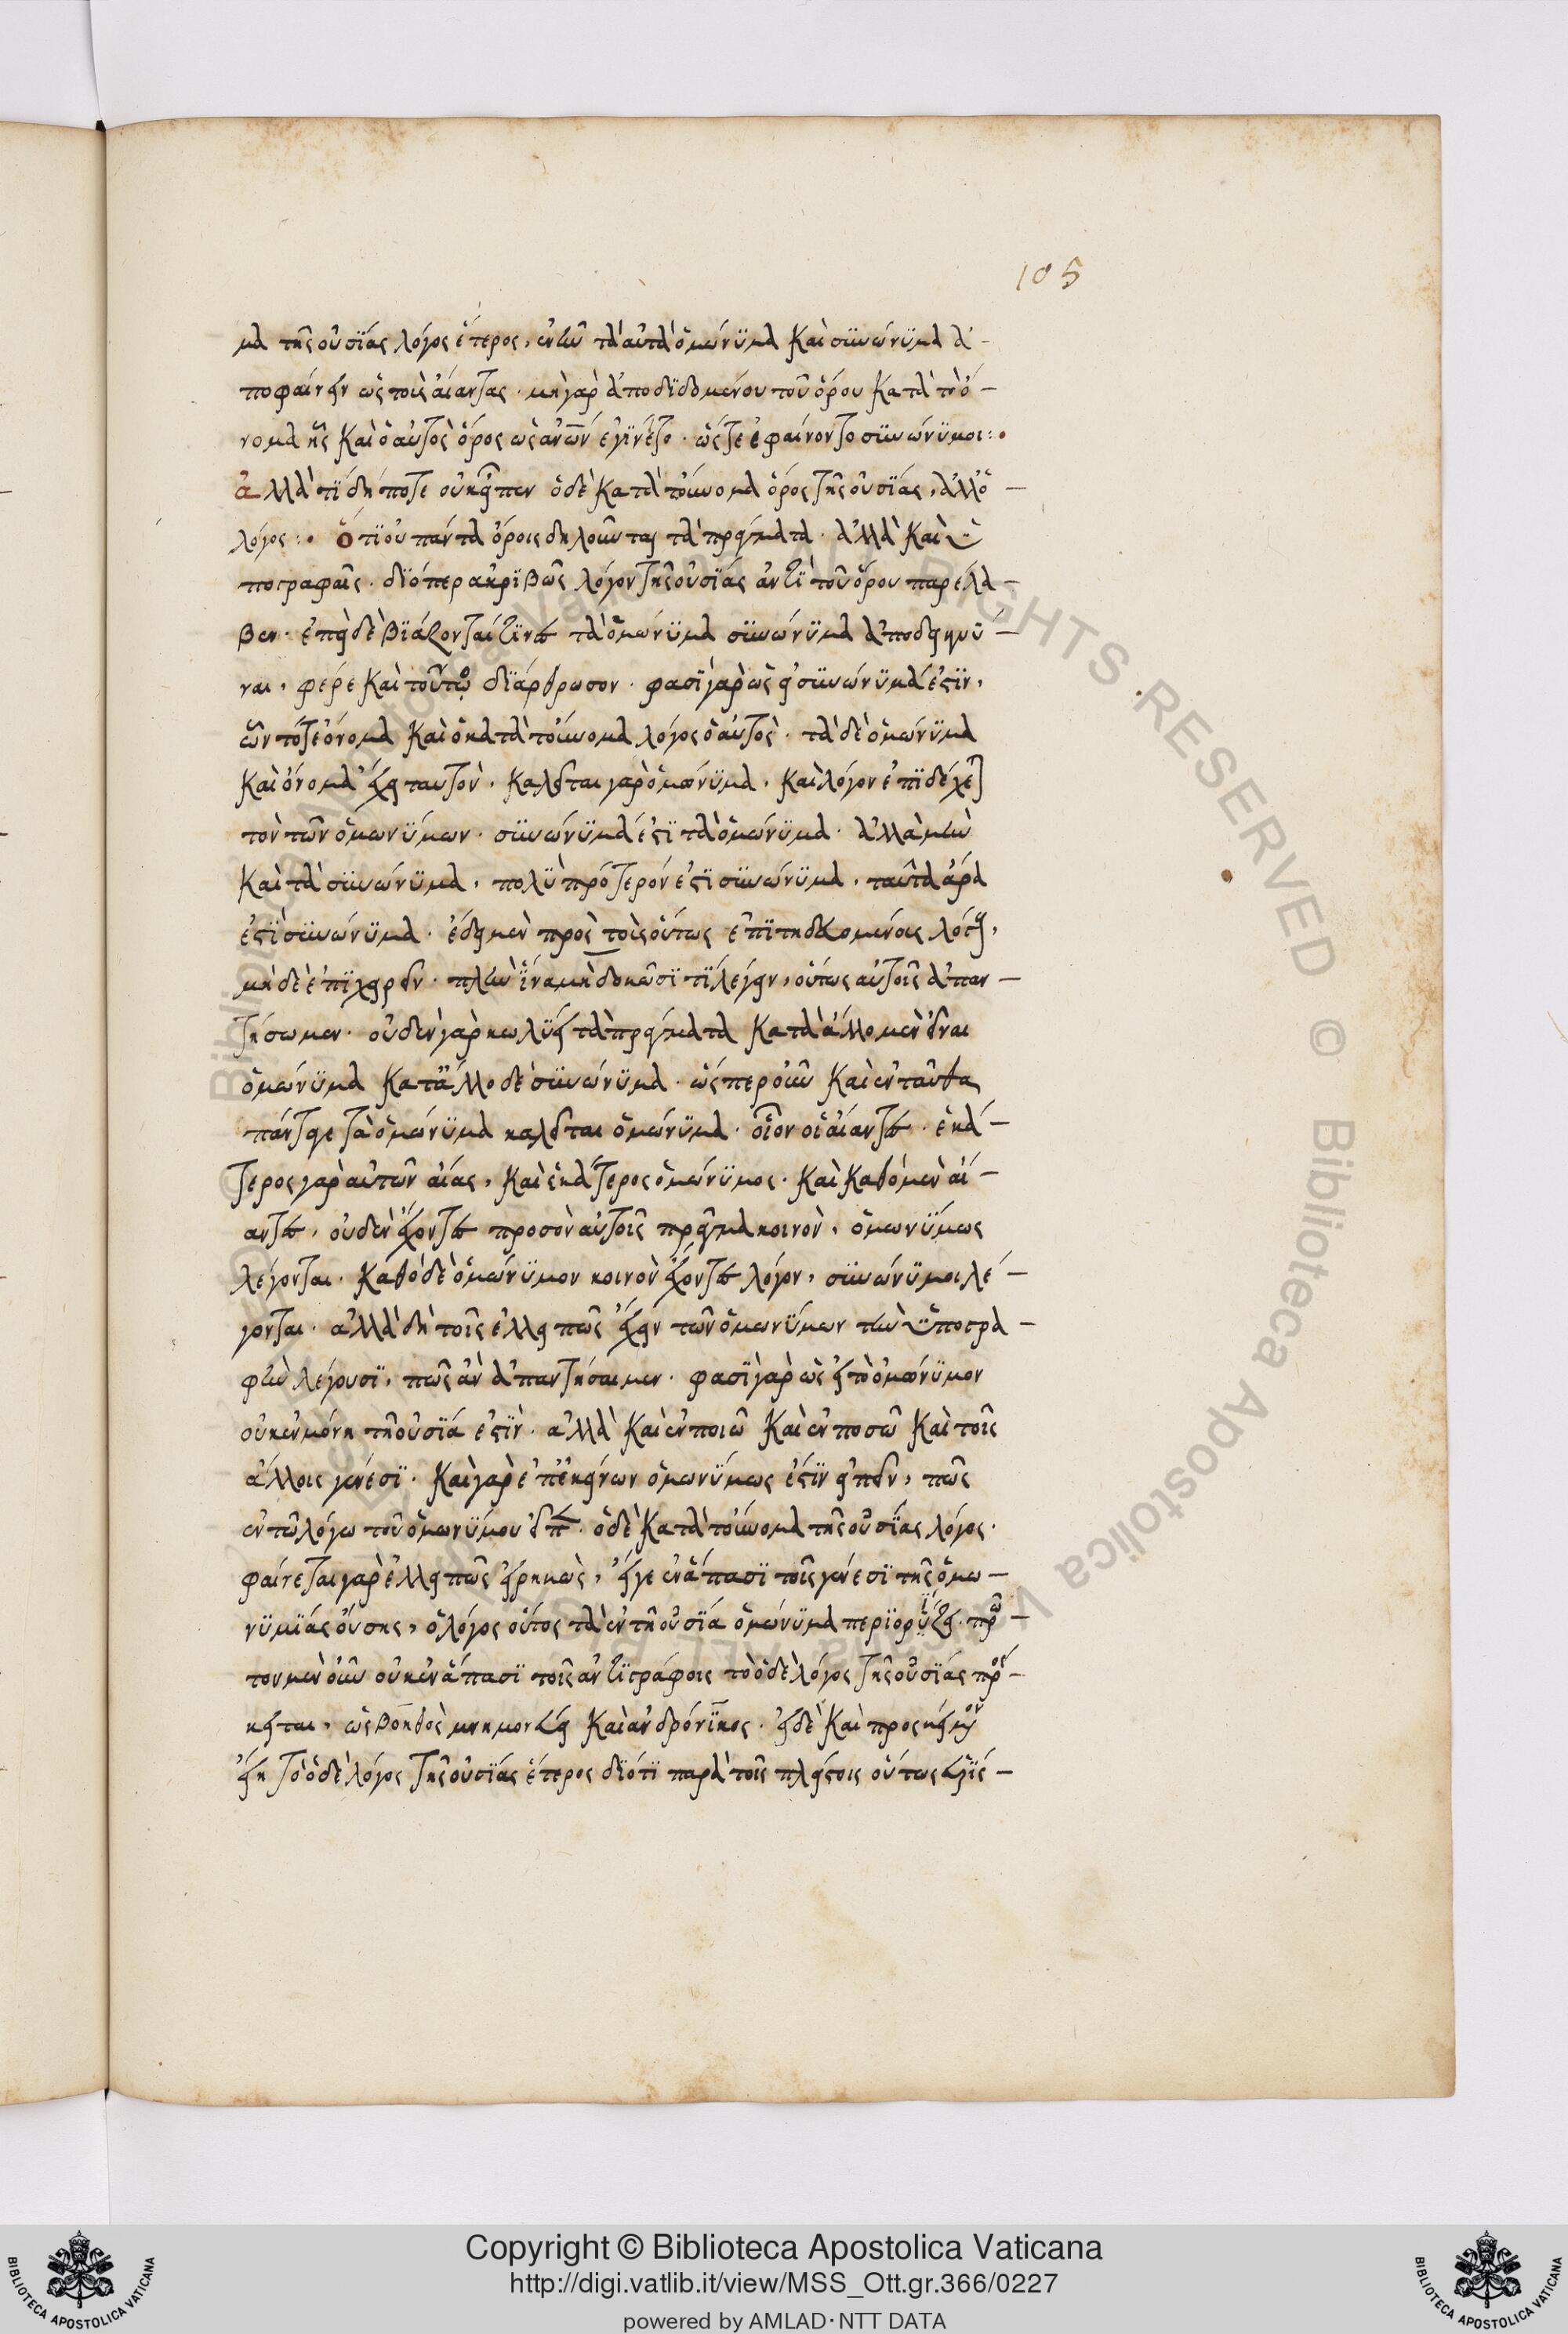 105
μα τῆς οὐσίας λόγος ἕτερος, ἐνῆν τὰ αὐτὰ ὁμώνυμα καὶ συνώνυμα ἀ-
ποφαίνειν ὡς τοὺς αἴαντας· μὴ γὰρ ἀποδιδομένου τοῦ ὅρου κατὰ τὸ ὄ-
νομα εἷς καὶ ὁ αὐτὸς ὅρος ὡς ἀνων ἐγίνετο· ὥστε ἐφαίνοντο συνώνυμοι:
ἀλλὰ τί δή ποτε οὐκ εἶπεν ὁ δὲ κατὰ τοὔνομα ὅρος τῆς οὐσίας, ἀλλ' ὁ
λόγος: ὅτι οὐ πάντα ὅροις δηλοῦνται τὰ πράγματα· ἀλλὰ καὶ ὑ
πογραφαῖς· διόπερ ἀκριβῶς λόγον τῆς οὐσίας ἀντὶ τοῦ ὅρου παρέλα-
βεν· ἐπεὶ δὲ βιάζονταί τινες τὰ ὁμώνυμα συνώνυμα ἀποδεικνύ-
ναι, φέρε καὶ τοῦτο διάρθρωσον· φασὶ γὰρ ὡς εἰ συνώνυμά ἐστιν,
ὧν τό τε ὄνομα καὶ ὁ κατὰ τοὔνομα λόγος ὁ αὐτός· τὰ δὲ ὁμώνυμα
καὶ ὄνομα ἔχει ταυτὸν, καλεῖται γὰρ ὁμώνυμα, καὶ λόγον ἐπιδέχεται
τὸν τῶν ὁμωνύμων· συνώνυμά ἐστι τὰ ὁμώνυμα· ἀλλὰ μὴν
καὶ τὰ συνώνυμα, πολὺ πρότερόν ἐστι συνώνυμα, ταῦτα ἄρα
ἐστὶ συνώνυμα· ἔδει μὲν πρὸς τοὺς οὕτως ἐπιτηδευομένοις
μηδὲ ἐπιχειρεῖν· πλὴν ἵνα μὴ δοκῶσί τι λέγειν, οὕτως αὐτοῖς ἀπαν-
τήσωμεν· οὐδὲν γὰρ κωλύει τὰ πράγματα κατὰ ἄλλο μὲν εἶναι
ὁμώνυμα κατ' ἄλλο δὲ συνώνυμα· ὥσπερ οὖν καὶ ἐνταῦθα
πάντα τὰ ὁμώνυμα καλεῖται ὁμώνυμα· οἷον οἱ αἴαντες· ἑκά-
τερος γὰρ αὐτῶν αἴας, καὶ ἑκάτερος ὁμώνυμος· καὶ καθὸ μὲν αἴ-
αντες, οὐδὲν ἔχοντες προσὸν αὐτοῖς πρᾶγμα κοινὸν, ὁμωνύμως
λέγονται· καθὸ δὲ ὁμώνυμον κοινὸν ἔχοντες λόγον, συνώνυμοι λέ-
γονται· ἀλλὰ δὴ τοῖς ἐλλιπῶς ἔχειν τῶν ὁμωνύμων τὴν ὑπογρα-
φὴν λέγουσι, πῶς ἂν ἀπαντήσαιμεν· φασὶ γὰρ ὡς εἰ τὸ ὁμώνυμον
οὐκ ἐν μόνῃ τῇ οὐσίᾳ ἐστίν· ἀλλὰ καὶ ἐν ποιῷ καὶ ἐν ποσῷ καὶ τοῖς
ἄλλοις γένεσι· καὶ γὰρ ἐπ' ἐκείνων ὁμωνύμως ἔστιν εἰπεῖν, πῶς
ἐν τῷ λόγῳ τοῦ ὁμωνύμου εἶπε· ὁ δὲ κατὰ τοὔνομα τῆς οὐσίας λόγος·
φαίνεται γὰρ ἐλλιπῶς εἰρηκώς, εἴγε ἐν ἅπασι τοῖς γένεσι τῆς ὁμω-
νυμίας οὔσης, ὁ λόγος οὗτος τὰ ἐν τῇ οὐσίᾳ ὁμώνυμα περιορίζει· πρῶ-
τον μὲν οὖν οὐκ ἐν ἅπασι τοῖς ἀντιγράφοις τὸ ὁ δὲ λόγος τῆς οὐσίας πρόσ-
κειται, ὡς βοηθὸς μνημονεύει καὶ ἀνδρόνικος· εἰ δὲ καὶ προσκείμενον
εἴη τὸ ὁ δὲ λόγος τῆς οὐσίας ἕτερος διότι παρὰ τοῖς πλείστοις οὕτως εὑρίσ-
Copyright © Biblioteca Apostolica Vaticana
http://digi.vatlib.it/view/MSS_Ott.gr.366/0227
powered by AMLAD·NTT DATA